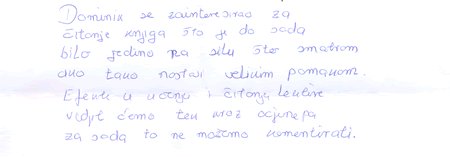 Dominik se zainteresirao za
čitanje knjiga što je do sada
bilo jedino na silu što smatram
ako tako nastavi velikim pomakom.
Efekti u učenju i čitanju lektire
vidjet ćemo tek kroz ocjene pa
za sada to ne možemo komentirati.